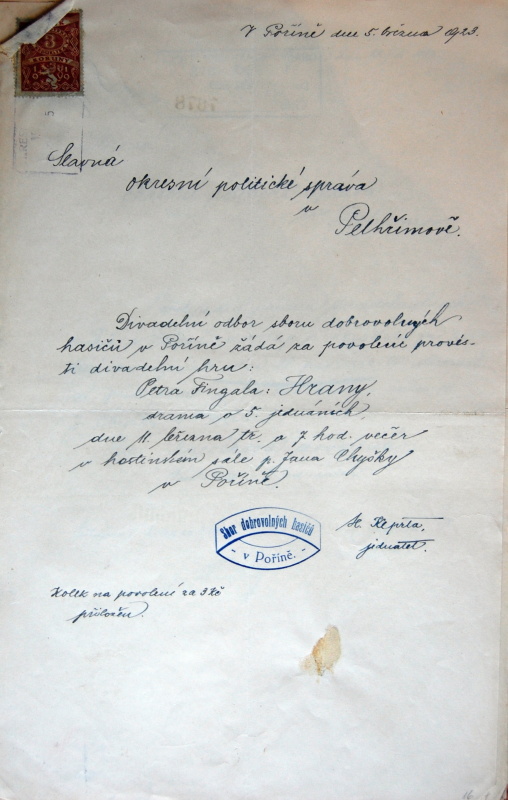 V Poříně dne 5. března 1923.
3
KORUNY
7678
Slavná
okresní politické správa
v
Pelhřimově.
Divadelní odbor sboru dobrovolných
hasičů v Poříně žádá za povolení provés-
ti divadelní hru:
Petra Fingala: Hrany,
drama o 5. jednáních,
dne 11. března tr. o 7 hod. večer
v hostinském sále p. Jana Chyšky
v Poříně.
Sbor dobrovolných hasičů
- v Poříně. -
jednatel.
Kolek na povolení za 3 Kč
přiložen.